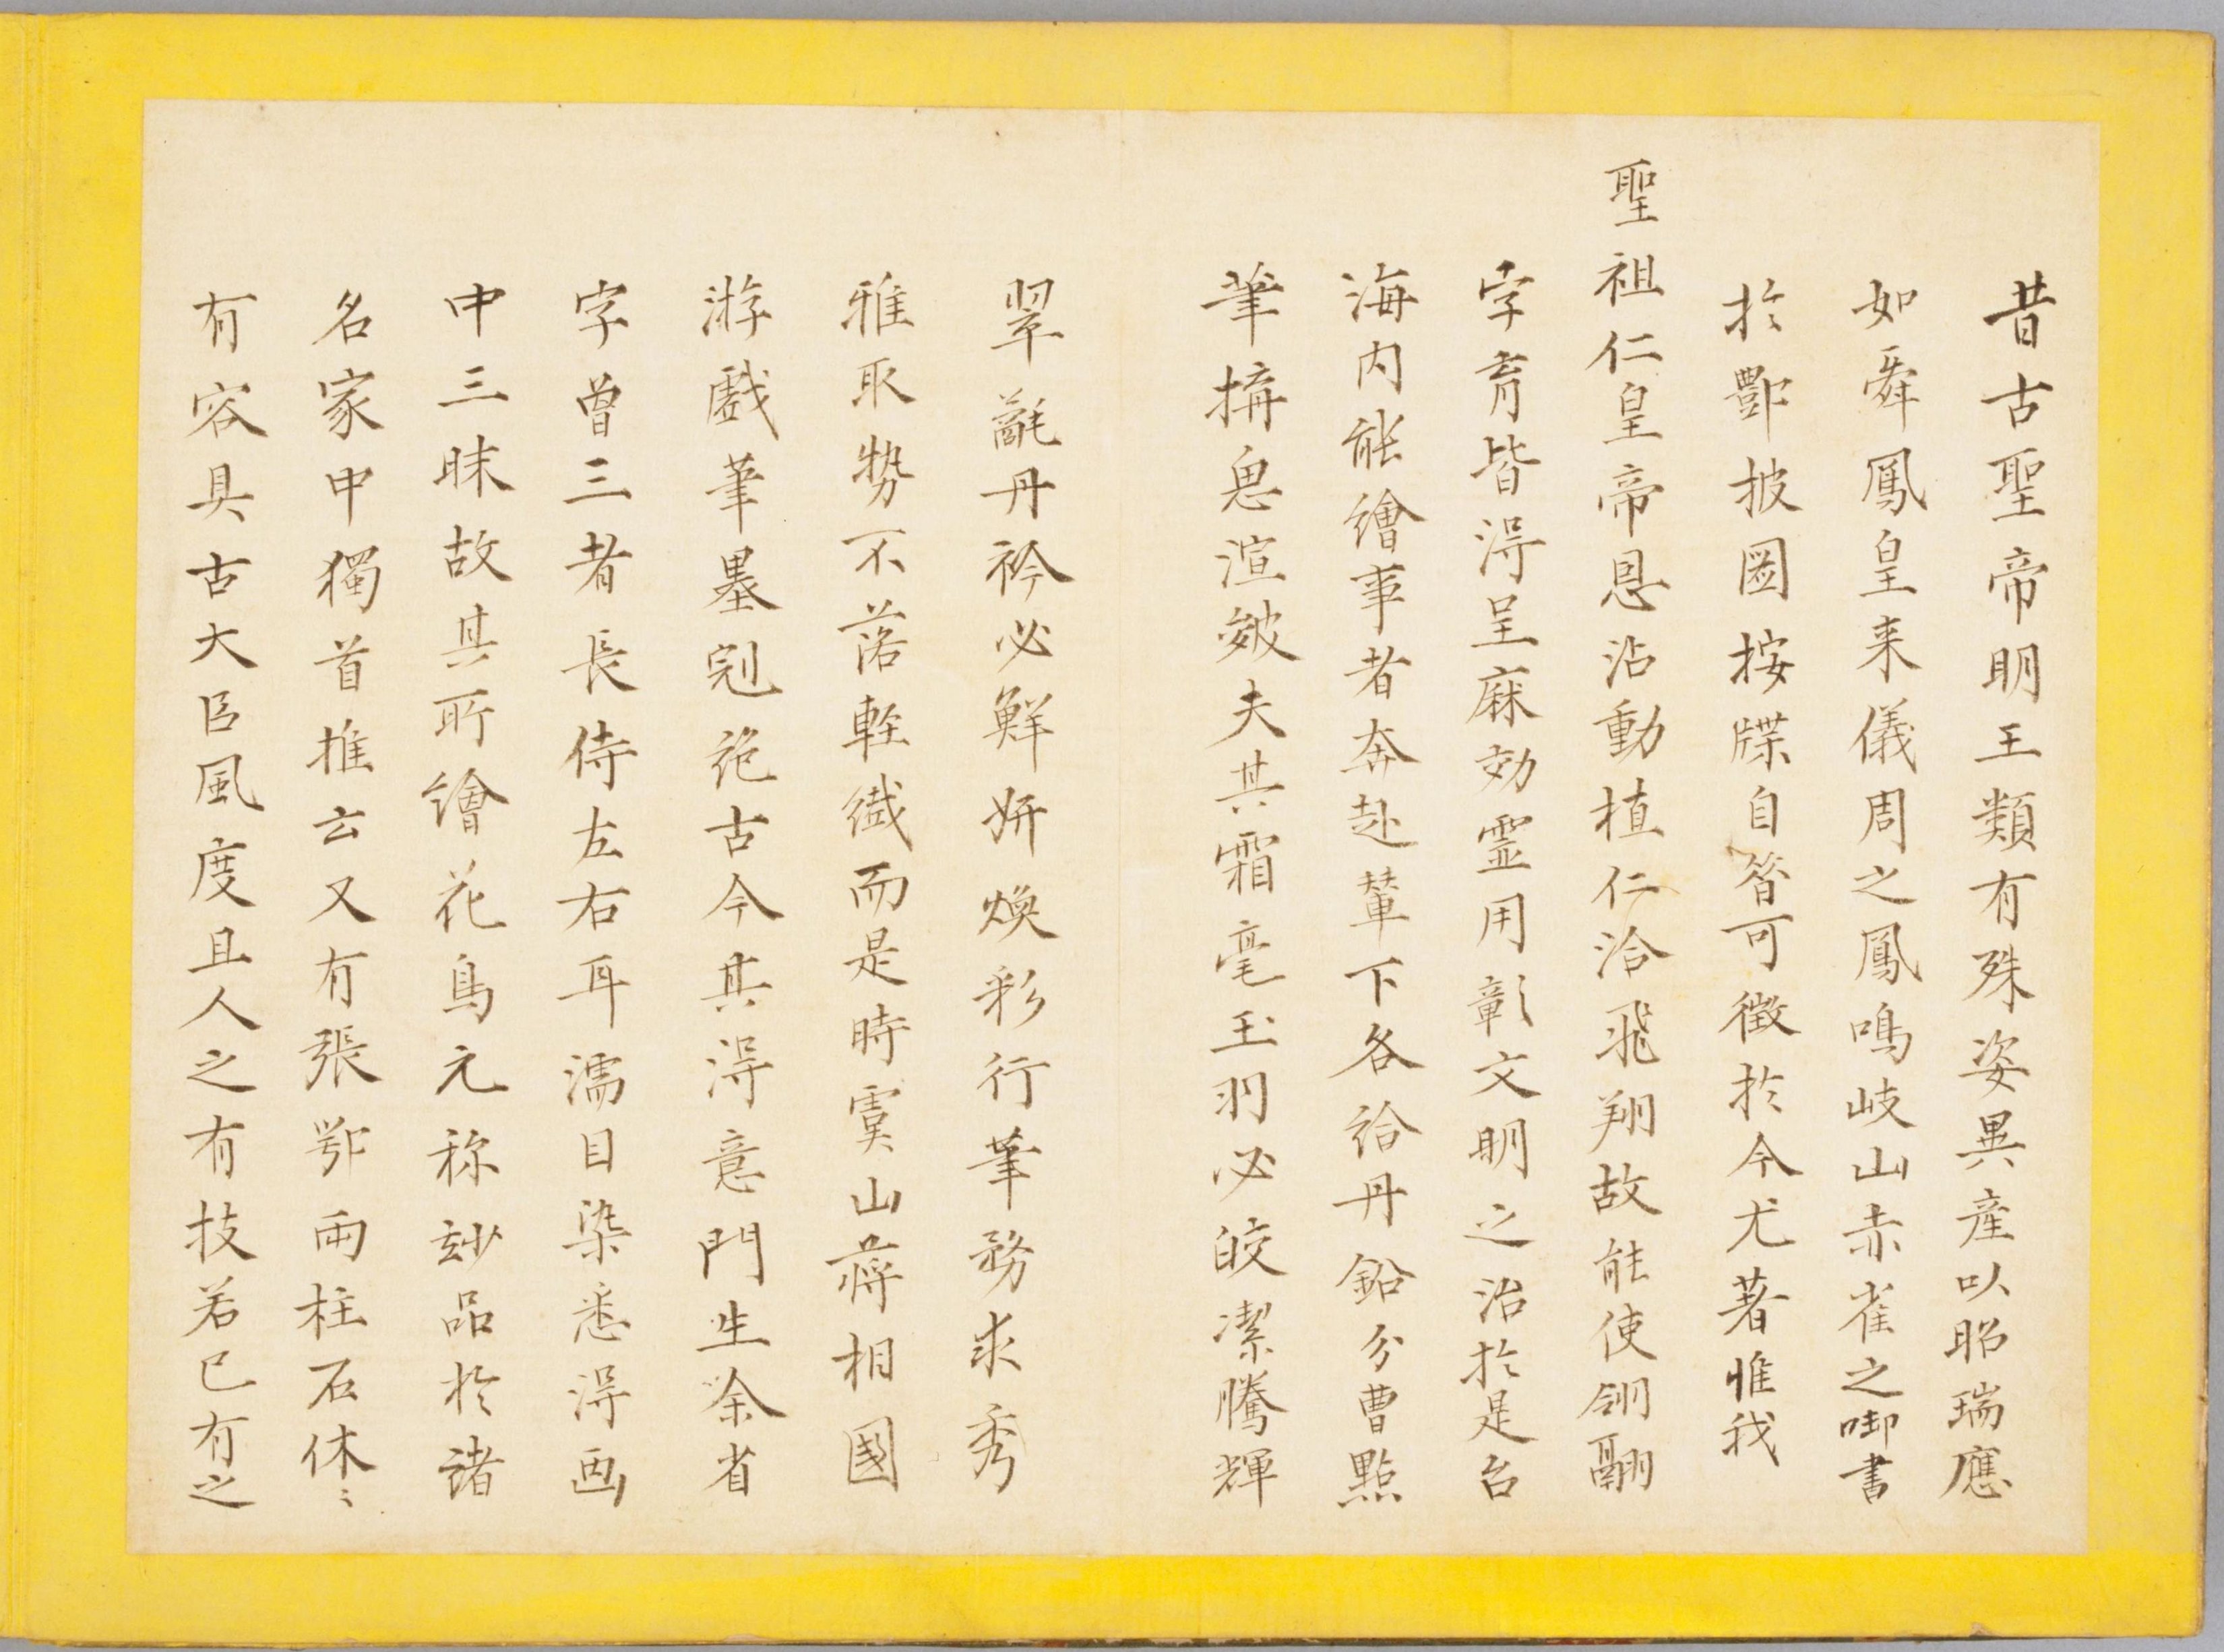 昔古聖帝明王類有殊姿異產以昭瑞應
如舜鳳皇来儀周之鳳鳴岐山赤雀之啣書
於酆披圖按牒自昝可徵於今尤著惟我
聖祖仁皇帝恩沾動植仁洽飛翔故能使翎翮
字育皆淂呈庥効霊用彰文明之治於是台
海内能繪事者奔赴輦下各給丹鉛分曹點
筆摛思渲皴夫其霜毫玉羽必皎潔騰輝
翠氄丹衿必鮮妍煥彩行筆務求秀
雅取勢不落輊纎而是時虞山蔣相國
游戲筆墨冠絶古今其淂意門生余省
字曾三者長侍左右耳濡目染悉淂画
中三昧故其所繪花鳥元称玅品於諸
名家中獨首推云又有張鄂兩柱石休〻
有容具古大臣風度且人之有技若已有之